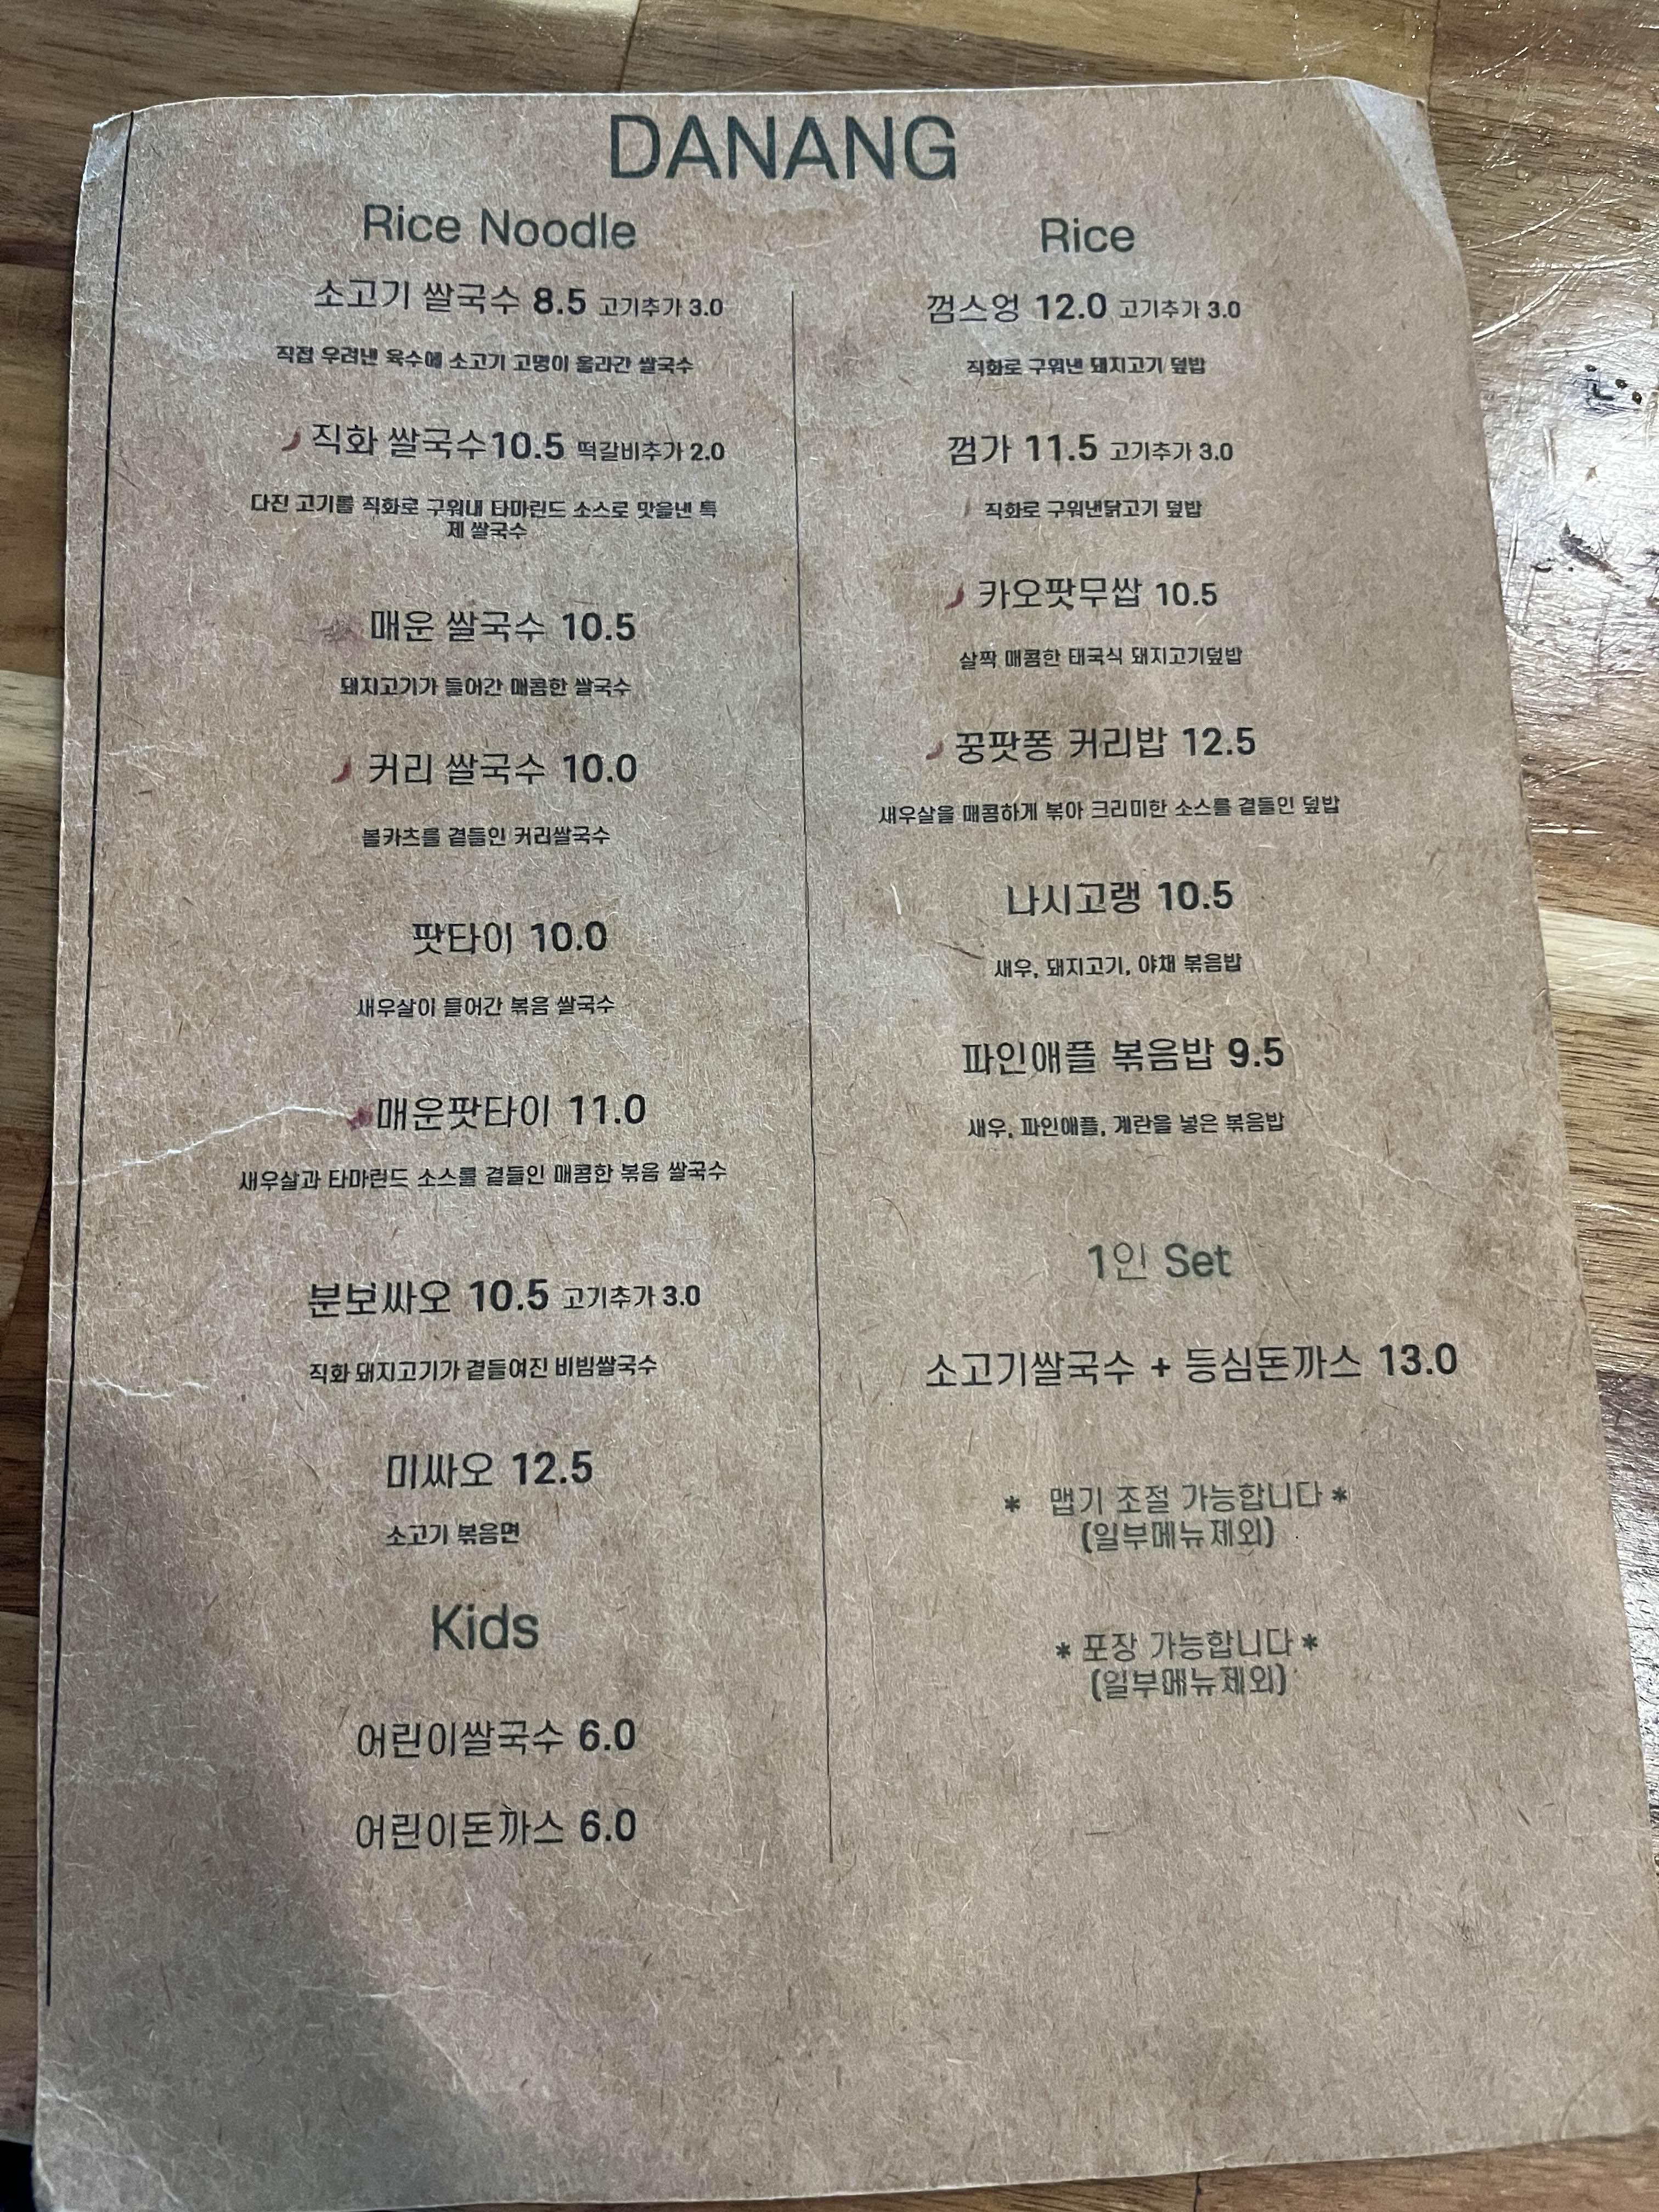 DANANG
Rice Noodle
소고기 쌀국수 8.5 고기추가 3.0
직접 우려낸 육수에 소고기 고명이 올라간 쌀국수
직화 쌀국수10.5 떡갈비추가 2.0
다진 고기를 직화로 구워내 타마린드 소스로 맛을낸 특
제 쌀국수
매운 쌀국수 10.5
돼지고기가 들어간 매콤한 쌀국수
커리 쌀국수 10.0
볼카츠를 곁들인 커리쌀국수
팟타이 10.0
새우살이 들어간 볶음 쌀국수
매운팟타이 11.0
새우살과 타마린드 소스를 곁들인 매콤한 볶음 쌀국수
분보싸오 10.5 고기추가 3.0
직화 돼지고기가 곁들여진 비빔쌀국수
미싸오 12.5
소고기 볶음면
Kids
어린이쌀국수 6.0
어린이돈까스 6.0
Rice
껌스엉 12.0 고기추가 3.0
직화로 구워낸 돼지고기 덮밥
껌가 11.5 고기추가 3.0
직화로 구워낸닭고기 덮밥
카오팟무쌉 10.5
살짝 매콤한 태국식 돼지고기덮밥
꿍팟퐁 커리밥 12.5
새우살을 매콤하게 볶아 크리미한 소스를 곁들인 덮밥
나시고랭 10.5
새우, 돼지고기, 야채 볶음밥
파인애플 볶음밥 9.5
새우, 파인애플, 계란을 넣은 볶음밥
1인 Set
소고기쌀국수 + 등심돈까스 13.0
* 맵기 조절 가능합니다 *
(일부메뉴제외)
* 포장 가능합니다 *
(일부메뉴제외)